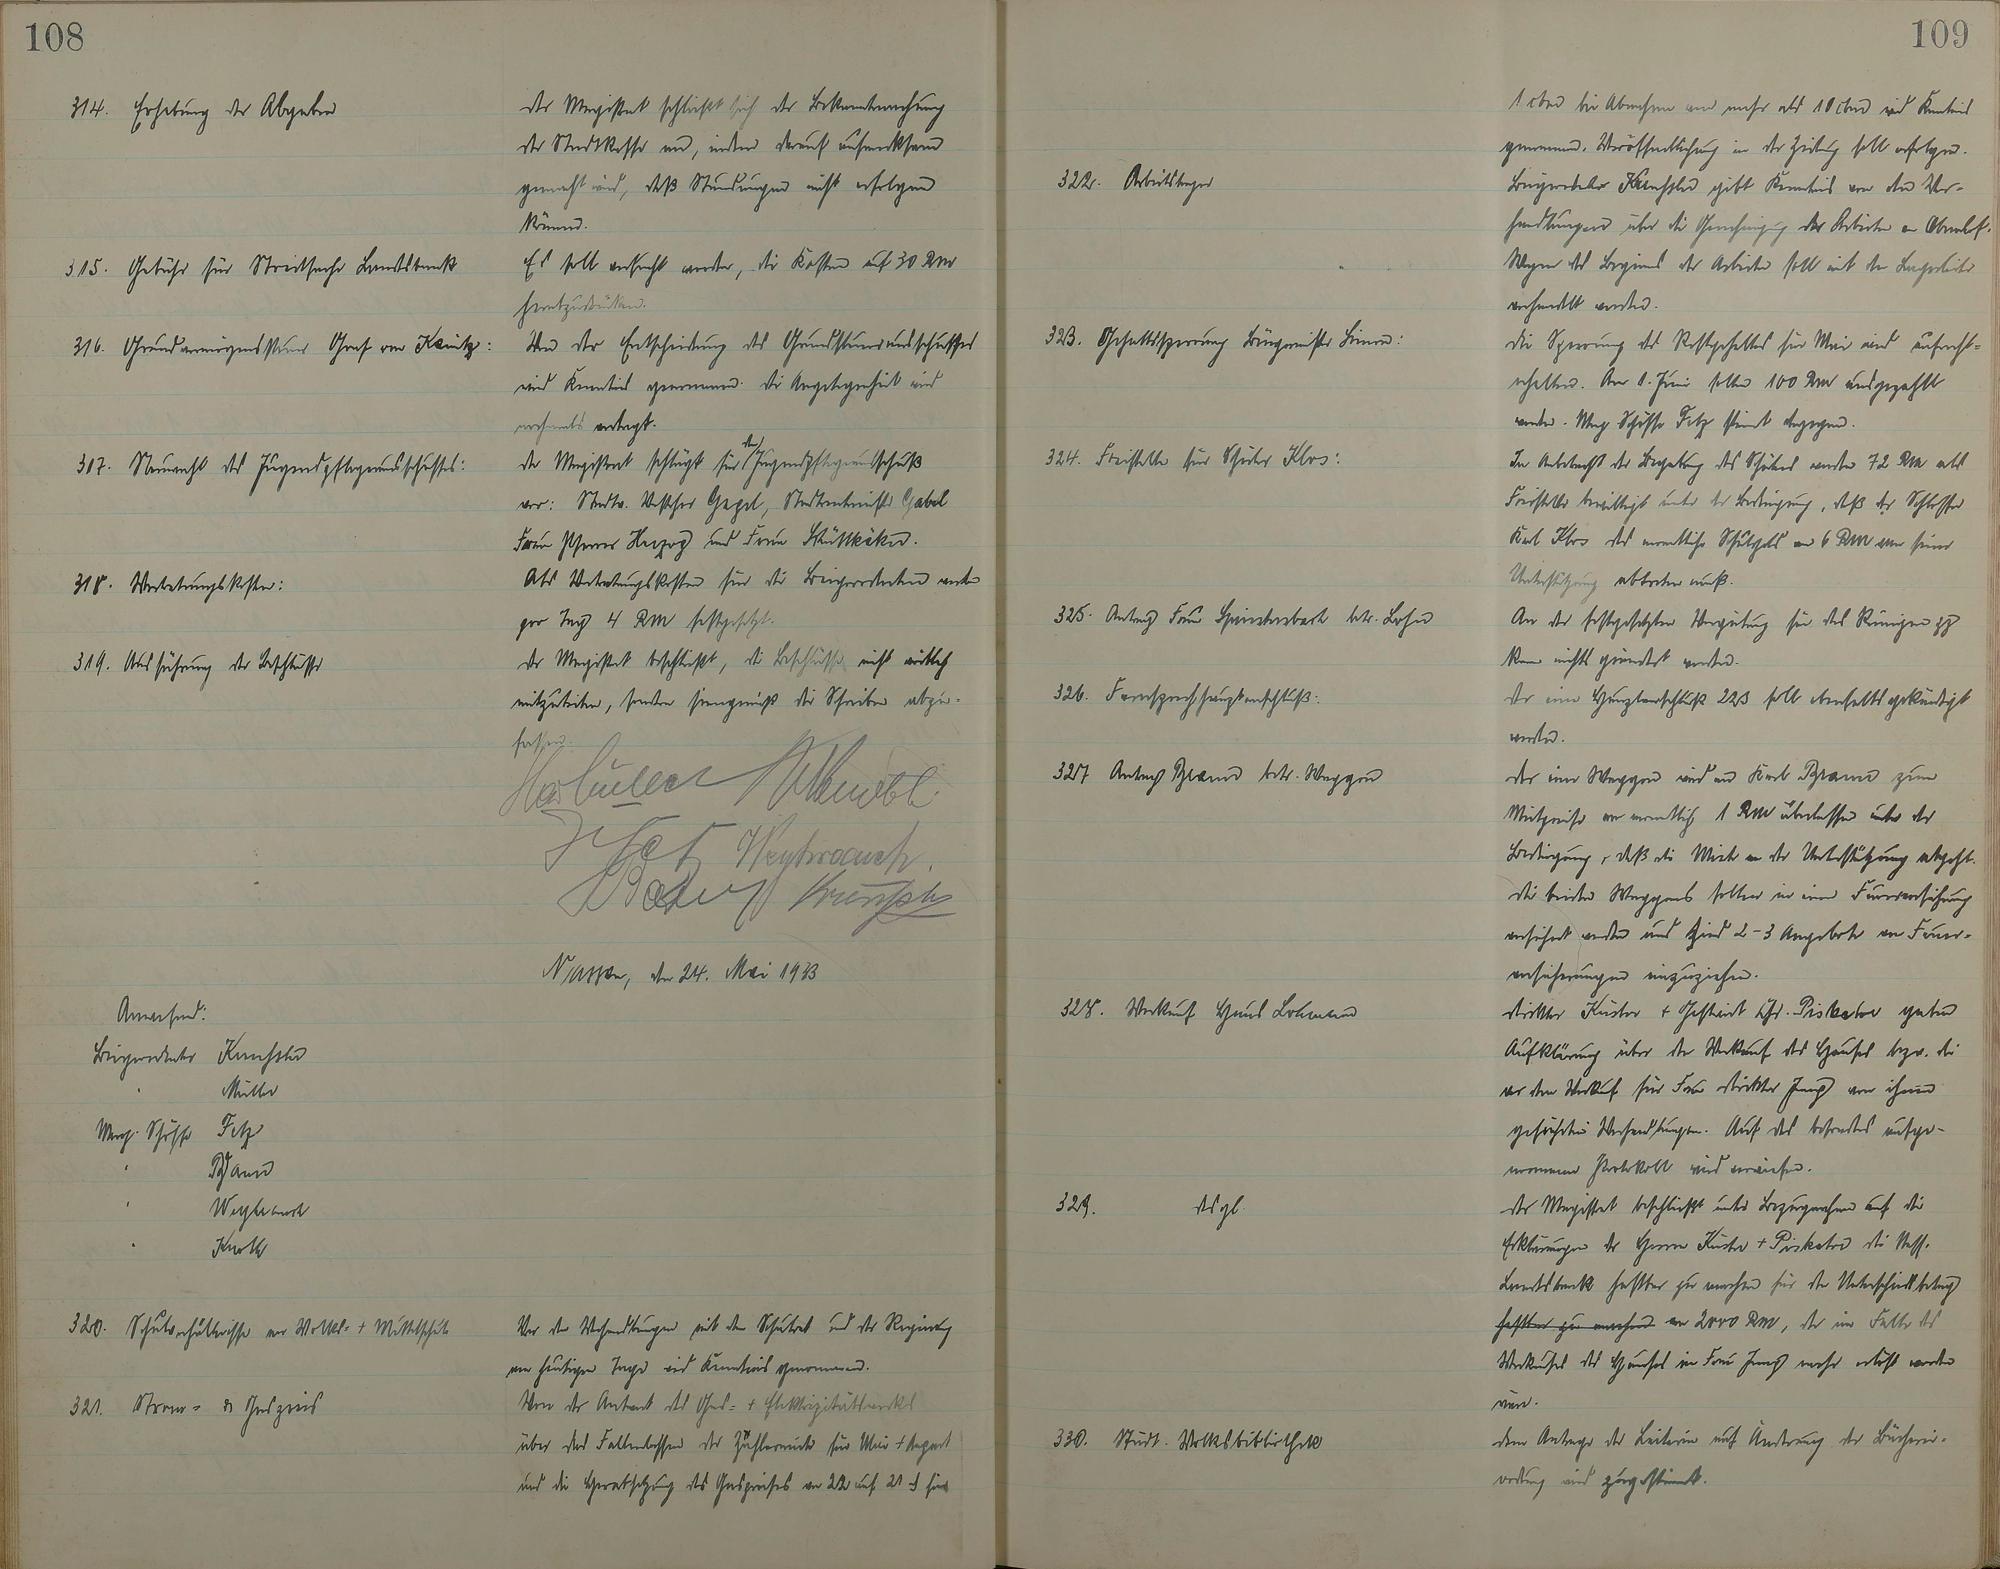 108
314. Erhebung der Abgaben
Der Magistrat schließt sich der Bekanntmachung
der Stadtkasse an, indem darauf aufmerksam
gemacht wird, daß Stundungen nicht erfolgen
können.
315. Gebühr für Streitsache Landesbank
Es soll versucht werden, die Kosten auf 30 RM
herabzudrücken.
316. Grundvermögenssteuer Graf von Kanitz:
Von der Entscheidung des Grundsteuerausschusses
wird Kenntnis genommen. Die Angelegenheit wird
nochmals vertagt.
317. Neuwahl des Jugendpflegeausschusses:
Der Magistrat schlägt für den Jugendpflegeausschuß
vor: Stadtv. Vorsteher Gapel, Stadtrentmeister Gabel
Frau Pfarrer Herzog und Frau
318. Vertretungskosten:
Als Vertretungskosten für die Beigeordneten werden
pro Tag 4 RM festgesetzt.
319. Ausführung der Beschlüsse
Der Magistrat beschließt, die Beschlüsse nicht wörtlich
mitzuteilen, sondern sinngemäß die Schreiben abzu-
fassen.
Fetz Weyhrauch
Nassau, den 24. Mai 1933
Anwesend:
Beigeordneter
" Müller
Mag. Schöffe Fetz
"
" Weyhrauch
"
320. Schulverhältnisse von Volks- + Mittelschule
Von den Verhandlungen mit dem Schulrat und der Regierung
am heutigen Tage wird Kenntnis genommen.
321. Strom- & Gaspreis
Von der Antwort des Gas- + Elektrizitätswerks
über das Fallenlassen der Zählermiete für Mai + August
und die Herabsetzung des Gaspreises von 22 auf 21 für
109
1 cbm bei Abnahme von mehr als 10 cbm wird Kenntnis
genommen. Veröffentlichung in der Zeitung soll erfolgen.
322. Arbeitslager
Beigeordneter gibt Kenntnis von den Ver-
handlungen über die Genehmigung der Arbeiten
Wegen des Beginns der Arbeiten soll mit der
verhandelt werden.
323. Gehaltssperrung Bürgermeister
Die Sperrung des Restgehaltes für Mai wird aufrecht-
erhalten. Am 1. Juni sollen 100 RM ausgezahlt
werden. Mag. Schöffe Fetz stimmt dagegen.
324. Freistelle für Schüler Klos:
In Anbetracht der Begabung des Schülers werden 72 RM als
Freistelle bewilligt unter der Bedingung, daß der Schlosser
Karl Klos das monatliche Schulgeld von 6 RM von seiner
Unterstützung abtreten muß.
325. Antrag Frau betr. Lohn
An der festgesetzten Vergütung für das Reinigen pp
kann nichts geändert werden.
326. Fernsprechhauptanschluß:
Der eine Hauptanschluß 223 soll ebenfalls gekündigt
werden.
327 Antrag betr. Waggon
Der eine Waggon wird an Karl zum
Mietpreise von monatlich 1 RM überlassen unter der
Bedingung, daß die Miete von der Unterstützung abgeht.
Die beiden Waggons sollen in einer Feuerversicherung
versichert werden und sind 2-3 Angebote von Feuer-
versicherungen einzuziehen.
328. Verkauf Haus
Direktor Küster + Piskator geben
Aufklärung über den Verkauf des Hauses bezw. die
vor dem Verkauf für Frau Direktor Jung von ihnen
geführten Verhandlungen. Auf das besonders aufge-
nommene Protokoll wird verwiesen.
329. Desgl.
Der Magistrat beschließt unter Bezugnahme auf die
Erklärungen der Herren Küster + Piskator die Nass.
Landesbank haftbar zu machen für den Unterschiedsbetrag
haftbar zu machen von 2000 RM, der im Falle des
Verkaufes des Hauses an Frau Jung mehr erlöst worden
wäre.
330. Städt. Volksbibliothek
Dem Antrage der Leiterin auf Änderung der Bücherei-
ordnung wird zugestimmt.